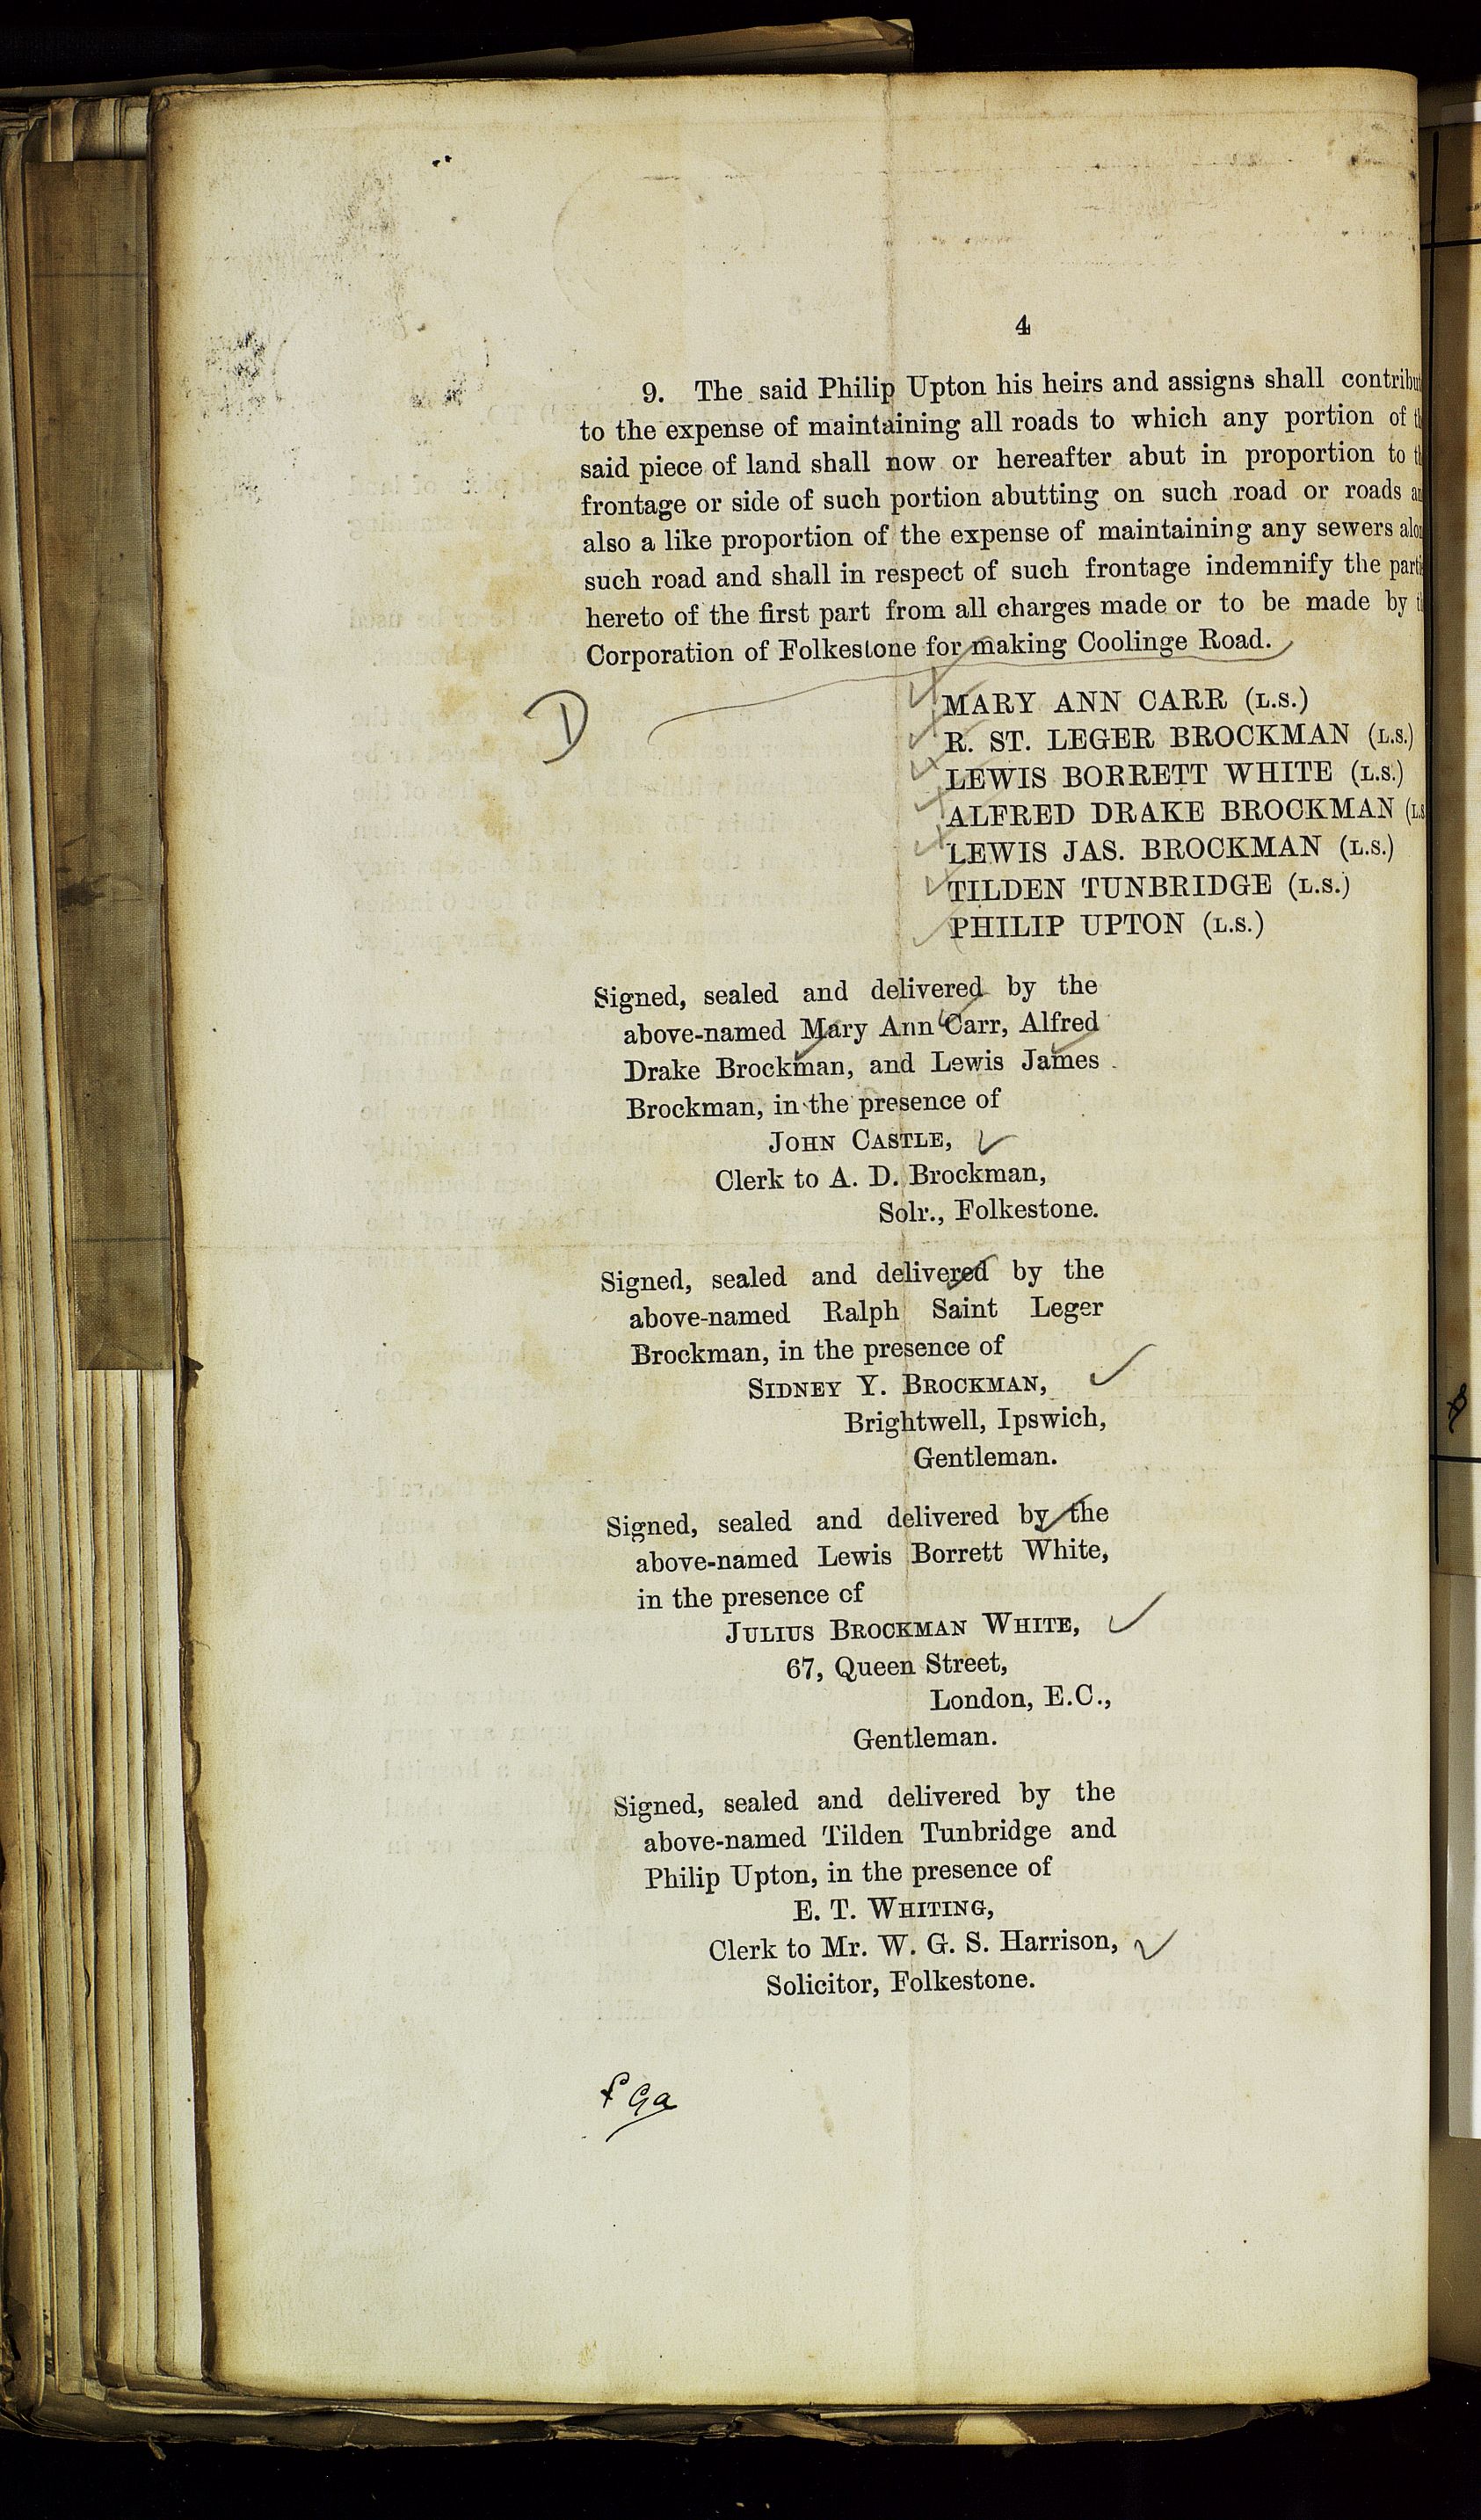 4
9. The said Philip Upton his heirs and assigns shall contribu
to the expense of maintaining all roads to which any portion of
said piece of land shall now or hereafter abut in proportion to
frontage or side of such portion abutting on such road or roads
also a like proportion of the expense of maintaining any sewers alo
such road and shall in respect of such frontage indemnify the parti
hereto of the first part from all charges made or to be made by
Corporation of Folkestone for making Coolinge Road.
D
MARY ANN CARR (L.S.)
R. ST. LEGER BROCKMAN (L.S.)
LEWIS BORRETT WHITE (L.S.)
ALFRED DRAKE BROCKMAN (L.S
LEWIS JAS. BROCKMAN (L.S.)
TILDEN TUNBRIDGE (L.S.)
PHILIP UPTON (L.S.)
Signed, sealed and delivered by the
above-named Mary Ann Carr, Alfred
Drake Brockman, and Lewis James
Brockman, in the presence of
JOHN CASTLE,
Clerk to A. D. Brockman,
Solr., Folkestone.
Signed, sealed and delivered by the
above-named Ralph Saint Leger
Brockman, in the presence of
SIDNEY Y. BROCKMAN,
Brightwell, Ipswich,
Gentleman.
Signed, sealed and delivered by the
above-named Lewis Borrett White,
in the presence of
JULIUS BROCKMAN WHITE,
67, Queen Street,
London, E.C.,
Gentleman.
Signed, sealed and delivered by the
above-named Tilden Tunbridge and
Philip Upton, in the presence of
E. T. WHITING,
Clerk to Mr. W. G. S. Harrison,
Solicitor, Folkestone.